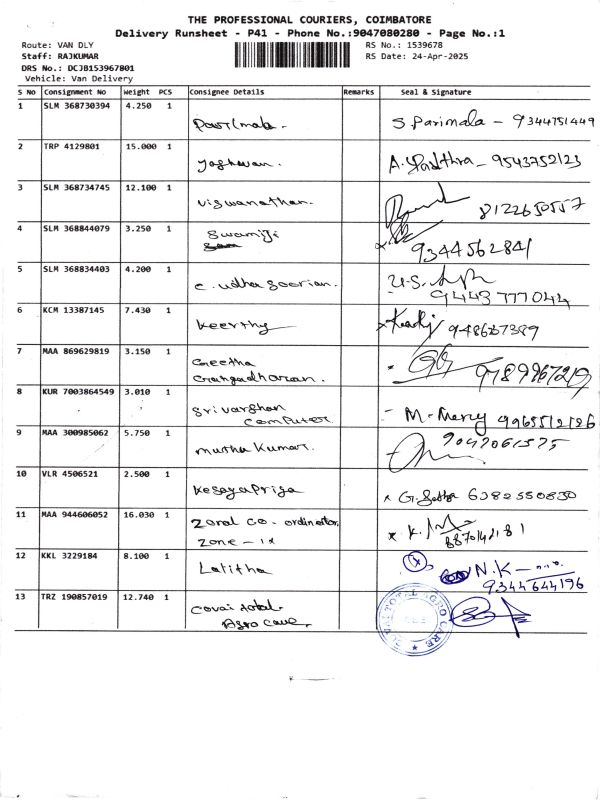 THE PROFESSIONAL COURIERS, COIMBATORE
Delivery Runsheet - P41 - Phone No.:9047080280 - Page No.:1
Route: VAN DLY
RS No.: 1539678
Staff: RAJKUMAR
RS Date: 24-Apr-2025
DRS No.: DCJB153967801
Vehicle: Van Delivery
S No Consignment No Weight PCS Consignee Details Remarks Seal & Signature
1 SLM 368730394 4.250 1
S. Parimala - 9344751449
2 TRP 4129801 15.000 1
Yashwan. A. - 9543752123
3 SLM 368734745 12.100 1
Viswanathan. 8122650557
4 SLM 368844079 3.250 1
Swamiji
9344562841
5 SLM 368834403 4.200 1
C. udha Soorian. U.S.
9443777044
6 KCM 13387145 7.430 1
Keerthy
7 MAA 869629819 3.150 1
Geetha
Gangadharan. 9789967219
8 KUR 7003864549 3.010 1
Srivarshan
Computer. - M. Mercy
9 MAA 300985062 5.750 1
Muthu Kumar. 9042061575
10 VLR 4506521 2.500 1
Kesaya Priya x G. 6382550830
11 MAA 944606052 16.030 1
Zonal Co-ordinator
Zone - IX x K.
8870142181
12 KKL 3229184 8.100 1
Lalitha N.K
9344644196
13 TRZ 190857019 12.740 1
Covai total
Agro Care. COVAI TOTAL AGRO CARE